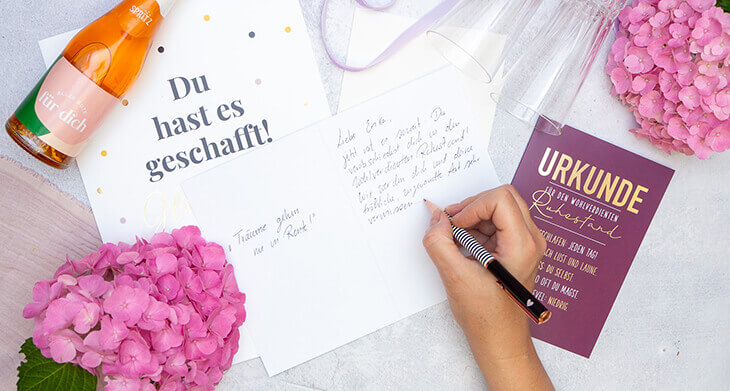 SPRITZ
für dich
Du
hast es
geschafft!
"Träume gehen
nie in Rente!"
Liebe Erika,
jetzt ist es soweit. Du
verabschiedest dich in den
wohlverdienten Ruhestand!
Wir werden dich und deine
fröhliche, Art sehr
vermissen
URKUNDE
FÜR DEN WOHLVERDIENTEN
Ruhestand
SCHLAFEN: JEDEN TAG!
CH LUST UND LAUNE
SS: DU SELBST
O OFT DU MAGST.
EVEL: NIEDRIG